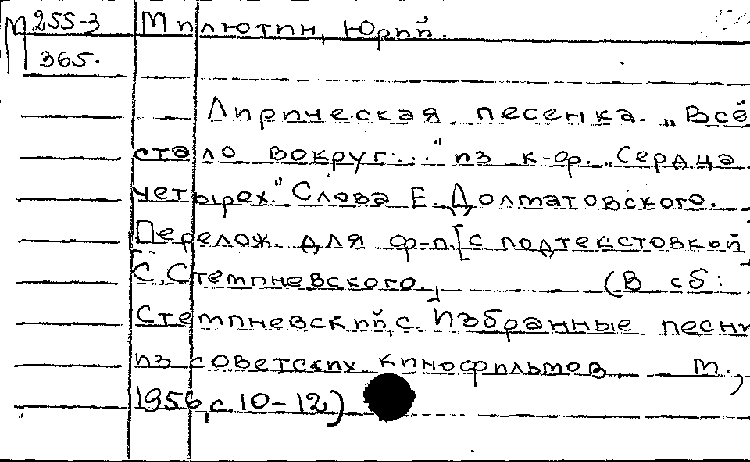 М 255-3 Милютин, Юрий.
365.
Лирическая песенка. „Всё
стало вокруг..." из к-ф. „Сердца
четырех." Слова Е. Долматовского.
Перелож. для ф-п. [с подтекстовкой]
С. Стемпневского. (В сб:
Стемпневский, С. Избранные песни
из советских кинофильмов М.,
1956, с. 10-12)